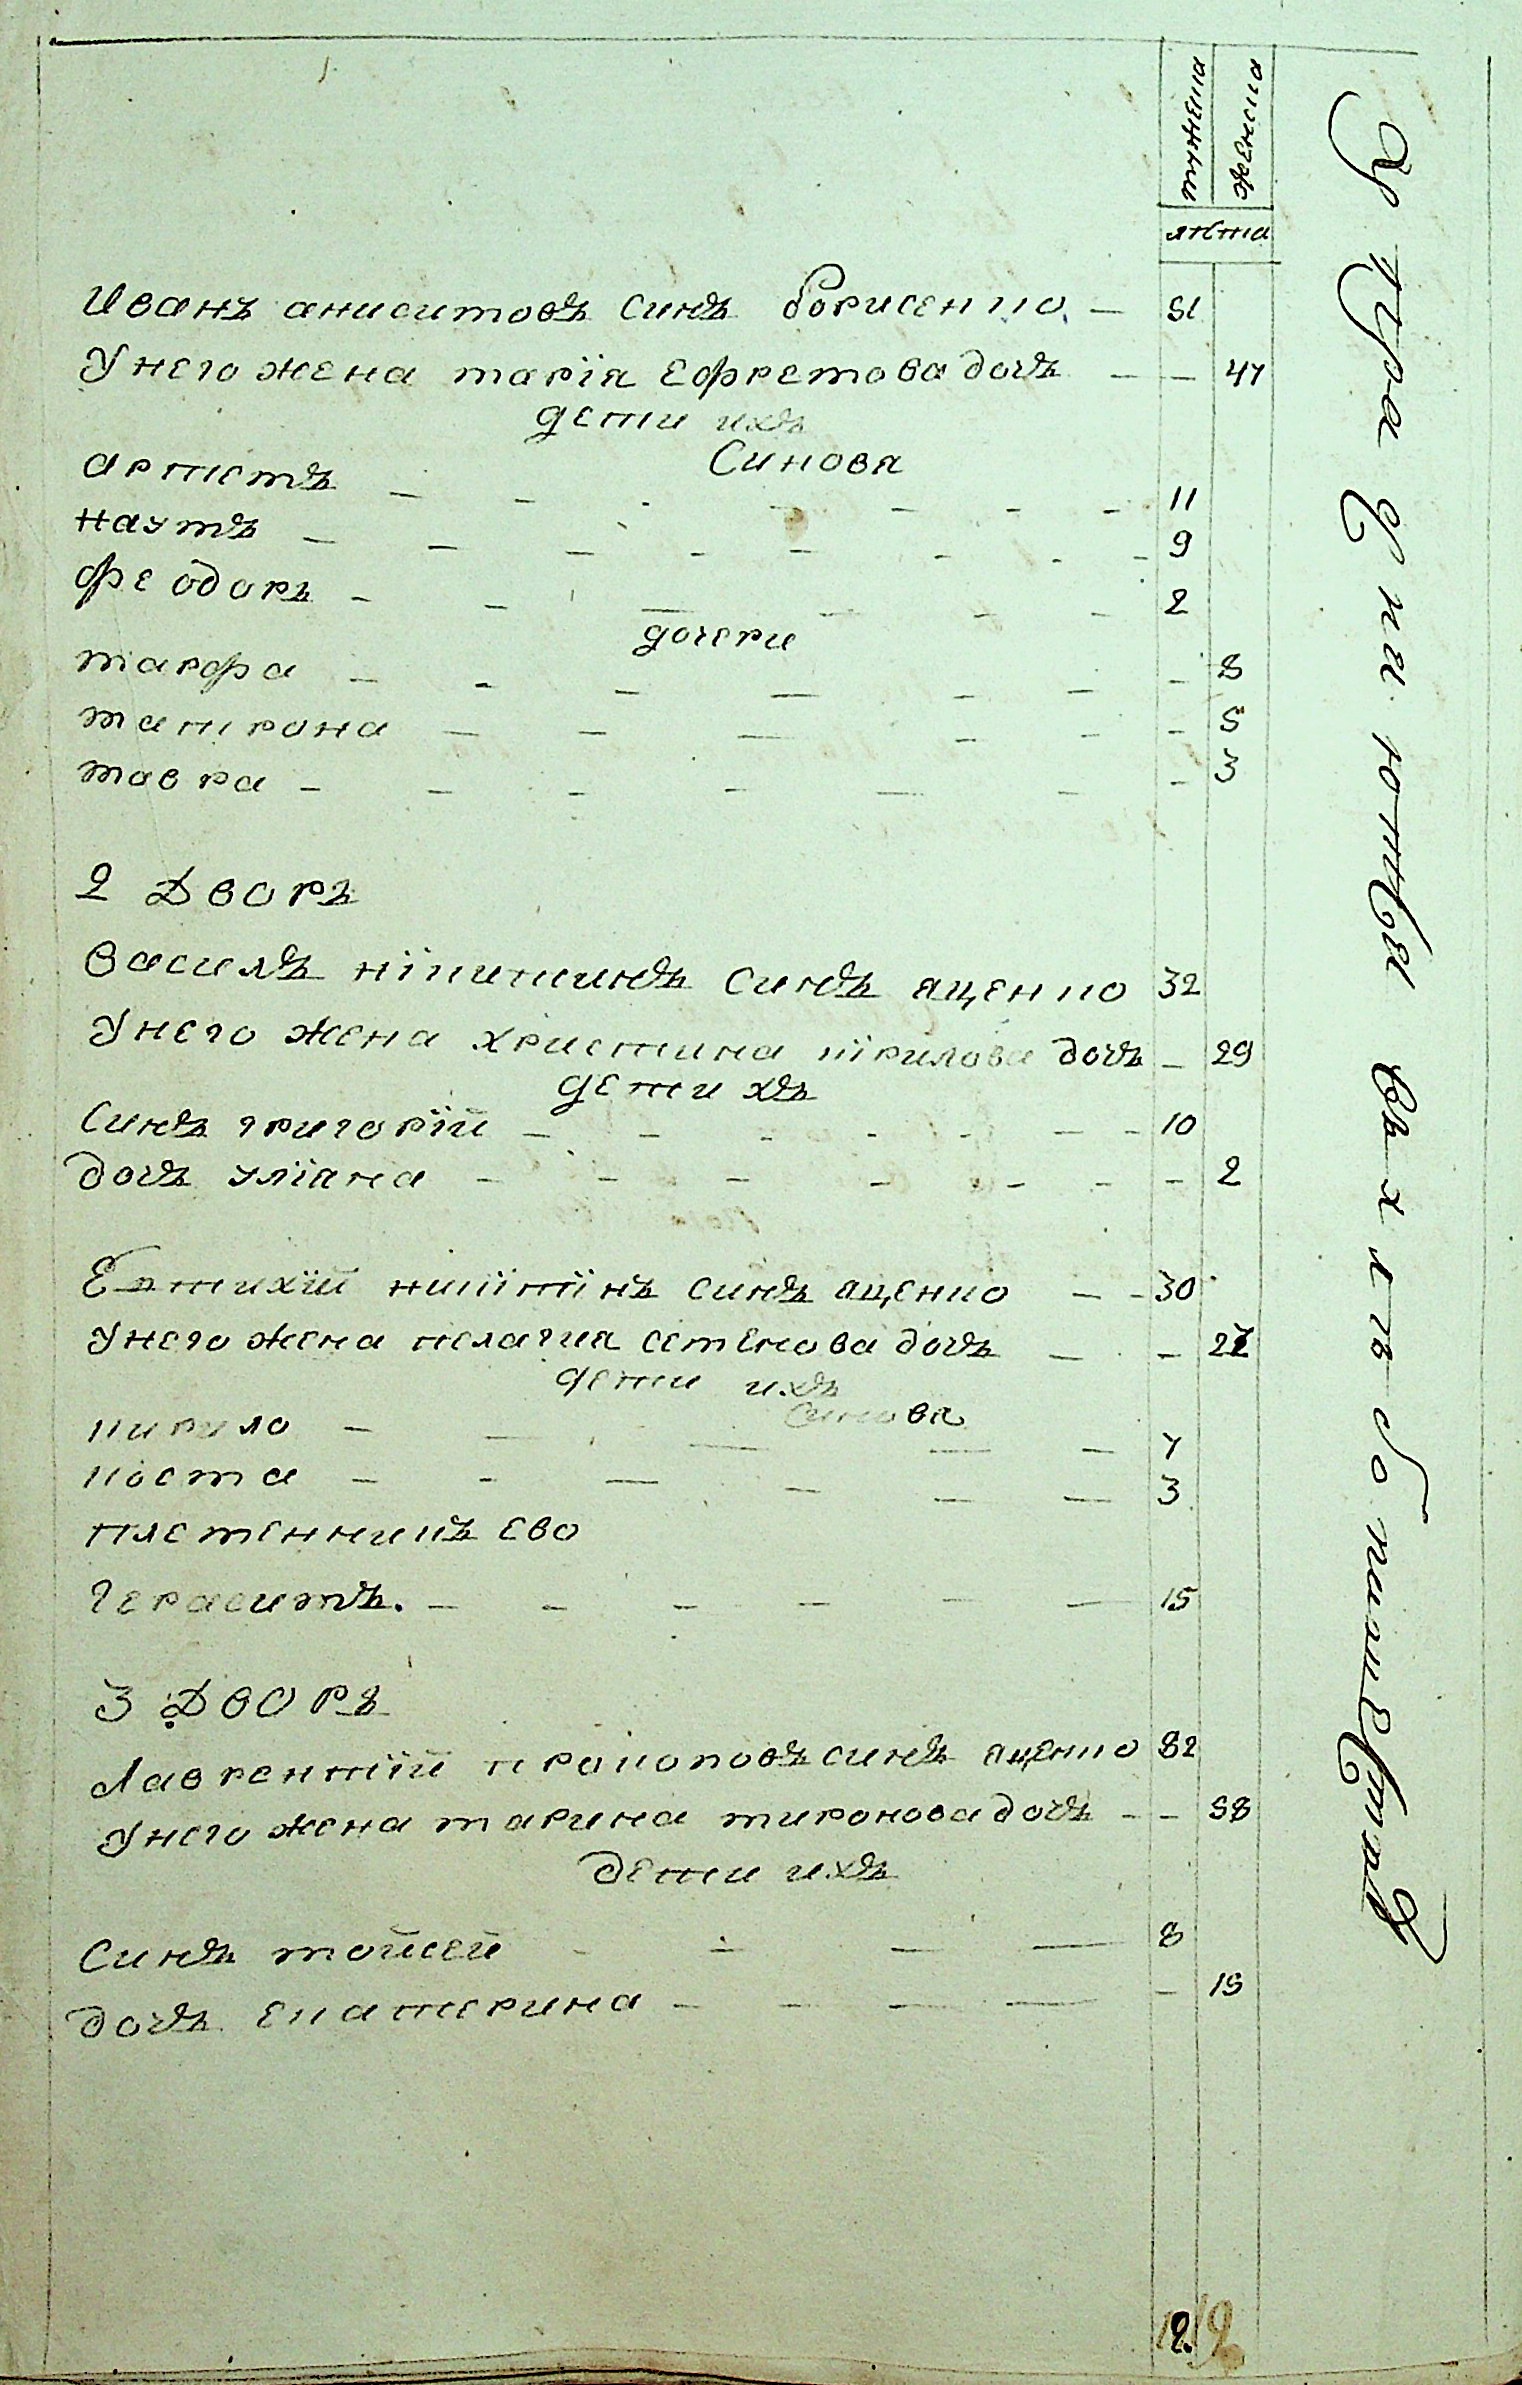 мужеска
женска
лѣта
Иванъ анисимовъ синъ борисенко 51
Унего жена марїя Ефремова дочъ 47
дети ихъ
Синовя
артемъ 11
наумъ 9
феодоръ 2
дочери
марфа 8
матрона 5
мавра 3
2 Дворъ
Василъ нїкитинъ синъ яценко 32
Унего жена христина кїрилова дочъ 29
дети хъ
Синъ григорїй 10
дочъ улїяна 2
Евтихїй никїтїнъ синъ яценко 30
Унего жена пелагия семенова дочъ
дети ихъ
синовя
кирило 7
косма 3
племенникъ ево
Герасимъ. 15
3 Дворъ
Лаврентїй прокоповъ синъ яценко 82
Унего жена марина миронова дочъ 58
дети ихъ
Синъ мойсей 8
дочъ екатерина 15
12.